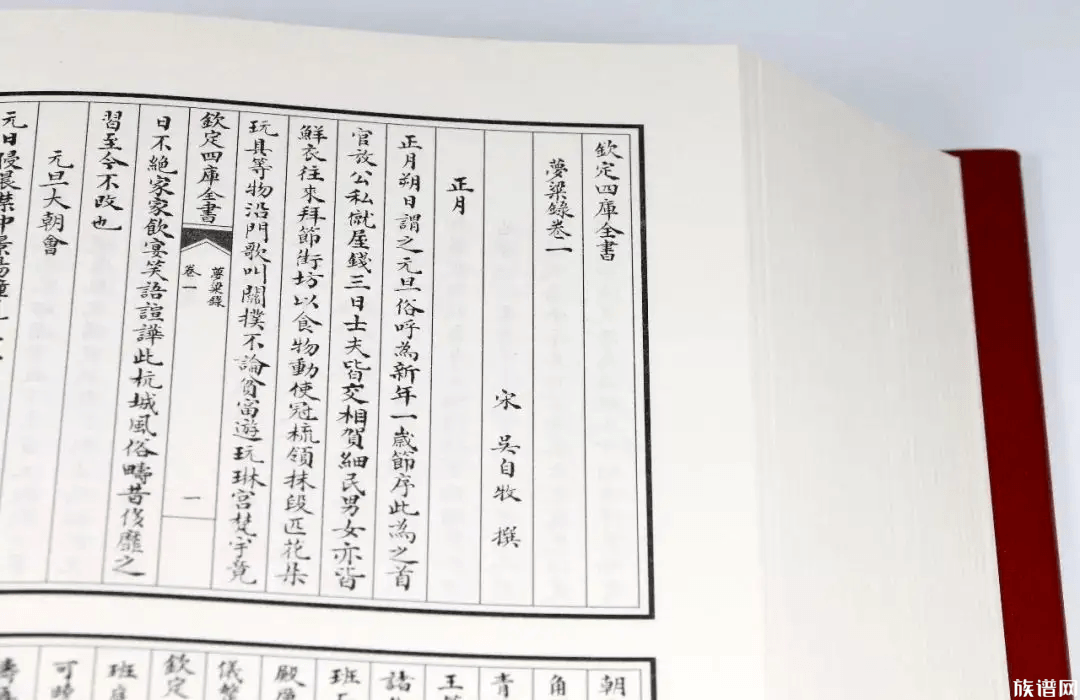 欽定四庫全書
夢粱錄卷二
宋 吳自牧 撰
正月
正月朔日謂之元旦俗呼為新年一歲節序此為之首
官放公私僦屋錢三日士夫皆交相賀細民男女亦皆
鮮衣往來拜節街坊以食物動使冠梳領抹段匹花朵
玩具等物沿門歌叫關撲不論貧富遊玩琳宮梵宇竟
欽定四庫全書
夢粱錄
卷一
一
日不絕家家飲宴笑語諠譁此杭城風俗疇昔侈靡之
習至今不改也
元旦大朝會
元日侵晨禁中景陽鐘
朝
角
青
王
諸
班
殿
儀
欽定
班
可
族谱网